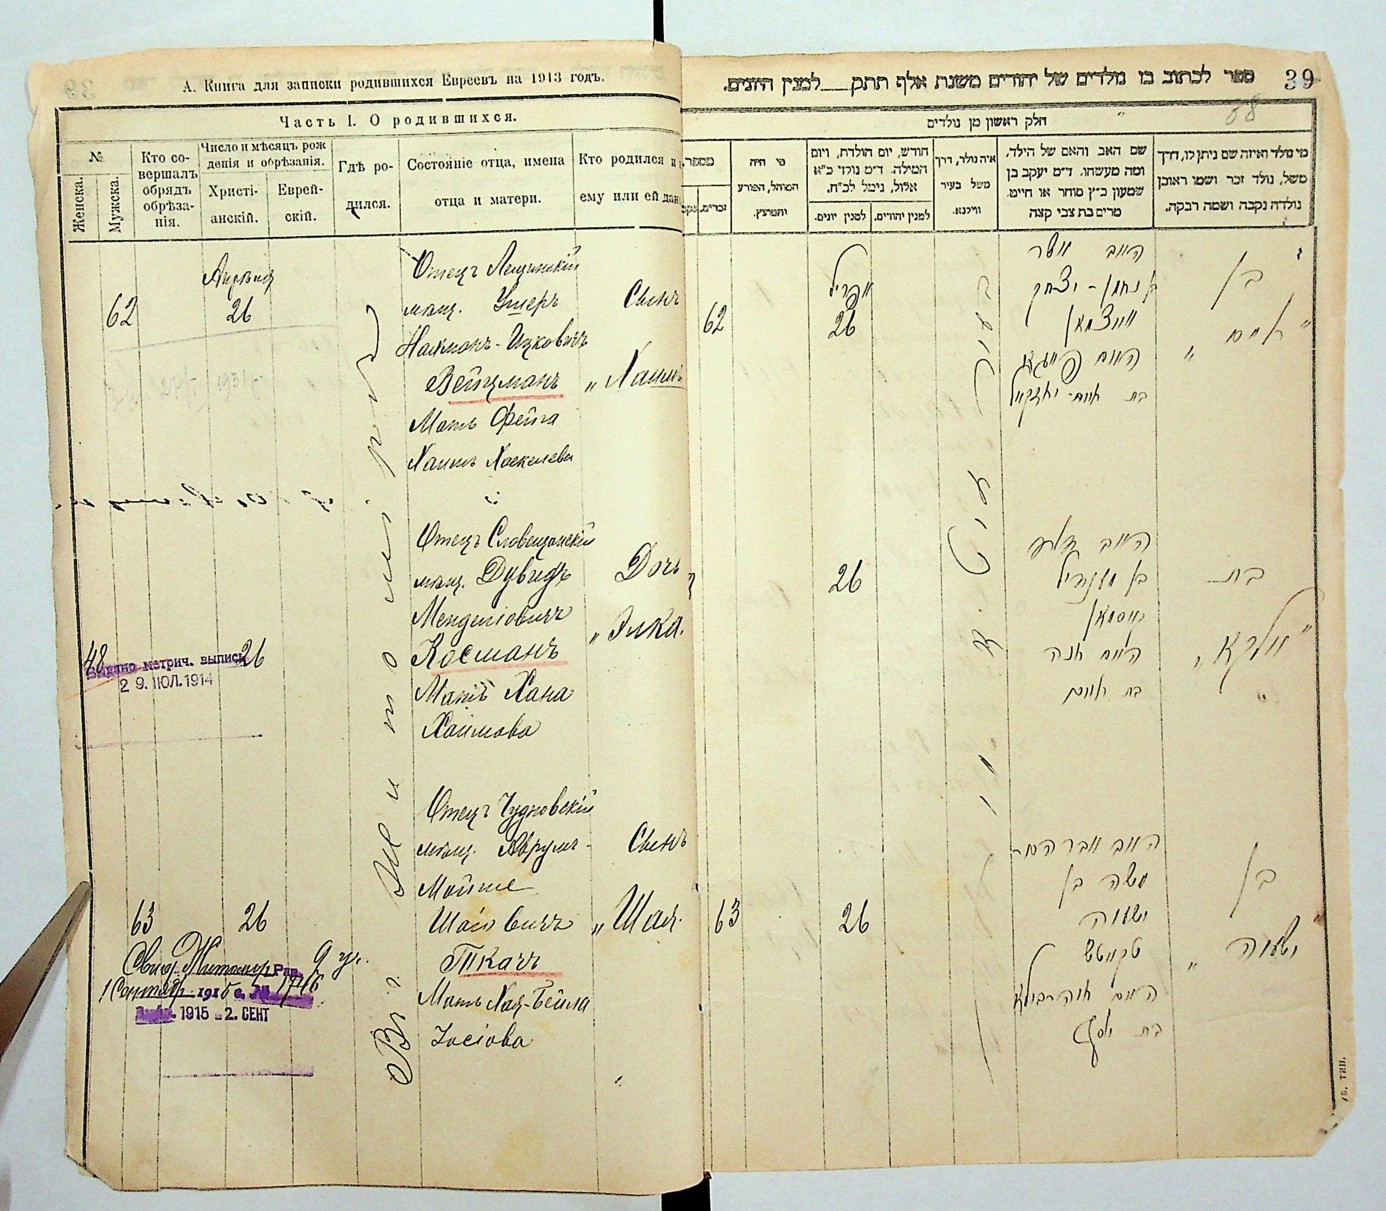 А. Книга для записки родившихся Евреевъ на 1913 годъ.
Часть I. О родившихся.
№
Женска.
Мужска.
Кто со-
вершалъ
обрядъ
обрѣза-
нія.
Число и мѣсяцъ рож
денія и обрѣзанія.
Христі-
анскій.
Еврей-
скій.
Гдѣ ро-
дился.
Состояніе отца, имена
отца и матери.
Кто родился и
ему или ей дан
Апрѣля
62
26
Отецъ
мѣщ. Ушеръ
Нахманъ-Ицковичъ
Вейцманъ
Мать Фейга
Хаимъ Хаскелева
Сынъ
„Хаимъ
Отецъ Словещанскій
мѣщ. Дувидъ
Менделіовичъ
Косманъ
Мать Хана
Хаимова
Дочь
„Элка.
48
26
Выдано метрич. выпись
29. ІЮЛ. 1914
Отецъ Чудновскій
мѣщ. Аврумъ-
Мойше
Шаіовичъ
Ткачъ
Мать Хая-Бейла
Іосіова
Сынъ
„Шая.
63
26
1915 - 2. СЕНТ
Въ г. Житомирѣ
ספר לכתוב בו נולדים של יהודים משנת אלף תתק למנין היונים.
39
58
חלק ראשון מן נולדים
מספר.
זכרים.
מי היה
המוהל, הפורע
והמוצץ.
חודש, יום הולדת, ויום
המילה. ד״מ נולד כ״א
אלול, נימל לכ״ח.
למנין יונים.
למנין יהודים.
איה נולד, דרך
משל בעיר
ווילנא.
שם האב והאם של הילד,
ומה מעשהו. ד״מ יעקב בן
שמעון כ״ץ סוחר או חייט.
מרים בת צבי קצה
מי נולד ואיזה שם ניתן לו, דרך
משל, נולד זכר ושמו ראובן
נולדה נקבה ושמה רבקה.
62
אפריל
26
האב אשר
נחמן - יצחק
ווייצמאן
האם פייגא
בת חיים - יחזקאל
בן
„חיים„
26
האב דוד
בן מענדיל
קאסמאן
האם חנה
בת חיים
בת
„עלקא„
63
26
האב אברהם-
משה בן
ישעיה
טקאטש
האם חיה-ביילא
בת יוסף
בן
„ישעיה„